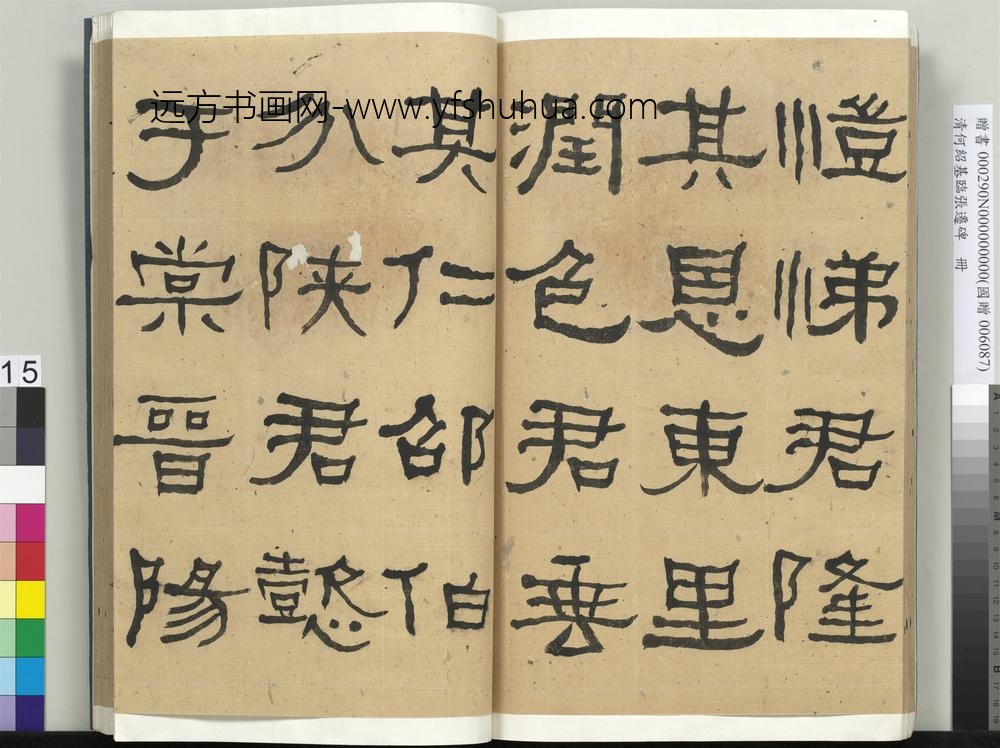 愷悌君隆
其恩東里
潤色君垂
其仁邵伯
分陝君懿
于棠晉陽
远方书画网-www.yfshuhua.com
贈書 000290N000000000(國贈 006087)
清何绍基臨張遷碑 冊
15